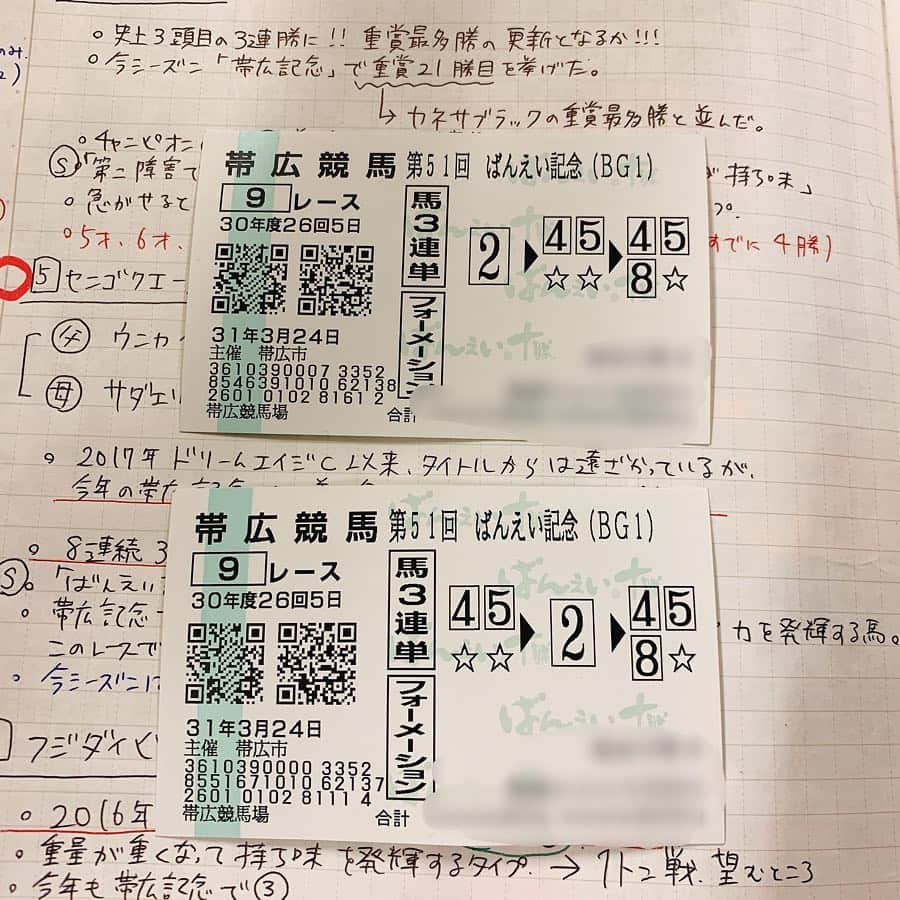 。史上3頭目の3連勝に!! 重賞最多勝の更新となるか!!!
。今シーズン「帯広記念」で重賞21勝目を挙げた。
↳ カネサブラックの重賞最多勝と並んだ。
。4チャンピオン
Ⓢ「第二障害で
が持ち味」
。急がせると
プ。
。5才、6才、
すでに4勝)
帯広競馬 第51回 ばんえい記念(BG1)
9レース
30年度26回5日
馬3連単
フォーメーション
2▶45☆☆▶458☆
31年3月24日
主催 帯広市
3610390007 3352
8546391010 62138
2601 0102 8161 2
帯広競馬場
合計
ばんえい十勝
5 センゴクエー
父 ウンカイ
母 サダエリ
。2017年ドリームエイジC以来、タイトルからは遠ざかっているが、
今年の帯広記念
帯広競馬 第51回 ばんえい記念(BG1)
9レース
30年度26回5日
馬3連単
フォーメーション
45☆☆▶2▶458☆
31年3月24日
主催 帯広市
3610390000 3352
8551671010 62137
2601 0102 8111 4
帯広競馬場
合計
ばんえい十勝
。8連続3
Ⓢ。「ばんえい
。帯広記念
力を発揮する馬。
このレースで
。今シーズンに
フジダイビ
。2016年
。重量が重くなって持ち味を発揮するタイプ → 1トン戦、望むところ
。今年も帯広記念で③